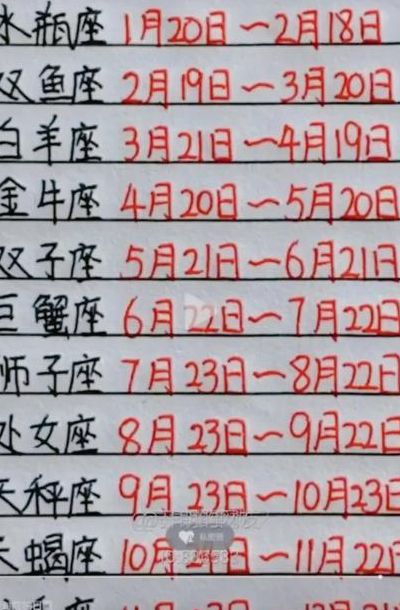 水瓶座 1月20日~2月18日
双鱼座 2月19日~3月20日
白羊座 3月21日~4月19日
金牛座 4月20日~5月20日
双子座 5月21日~6月21日
巨蟹座 6月22日~7月22日
狮子座 7月23日~8月22日
处女座 8月23日~9月22日
天秤座 9月23日~10月23日
天蝎座 10月24日~11月22日